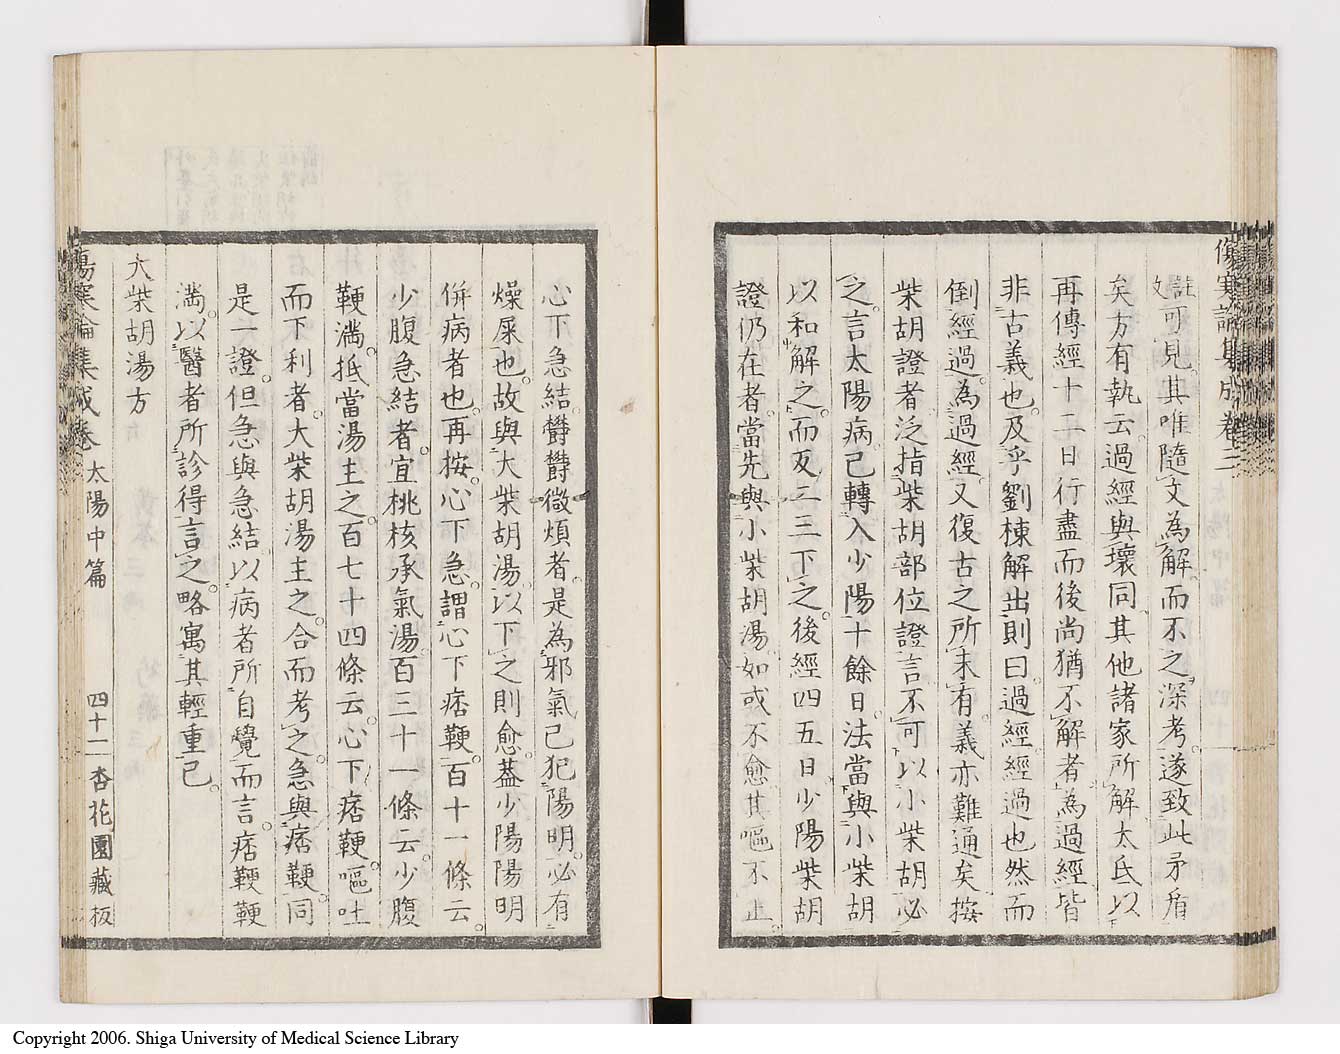 傷寒論集成卷三
註可見其唯隨文為解而不之深考遂致此矛盾
矣方有執云過經與壞同其他諸家所解大氐以
再傳經十二日行盡而後尚猶不解者為過經皆
非古義也及乎劉棟解出則曰過經經過也然而
倒經過為過經又復古之所未有義亦難通矣按
柴胡證者泛指柴胡部位證言不可以小柴胡必
之言太陽病已轉入少陽十餘日法當與小柴胡
以和解之而反二三下之後經四五日少陽柴胡
證仍在者當先與小柴胡湯如或不愈其嘔不止
心下急結欝欝微煩者是為邪氣已犯陽明必有
燥屎也故與大柴胡湯以下之則愈葢少陽陽明
併病者也再按心下急謂心下痞鞕百十一條云
少腹急結者宜桃核承氣湯百三十一條云少腹
鞕滿抵當湯主之百七十四條云心下痞鞕嘔吐
而下利者大柴胡湯主之合而考之急與痞鞕同
是一證但急與急結以病者所自覺而言痞鞕鞕
滿以醫者所診得言之略寓其輕重已
大柴胡湯方
傷寒論集成卷 太陽中篇 四十二 杏花園藏板
Copyright 2006. Shiga University of Medical Science Library